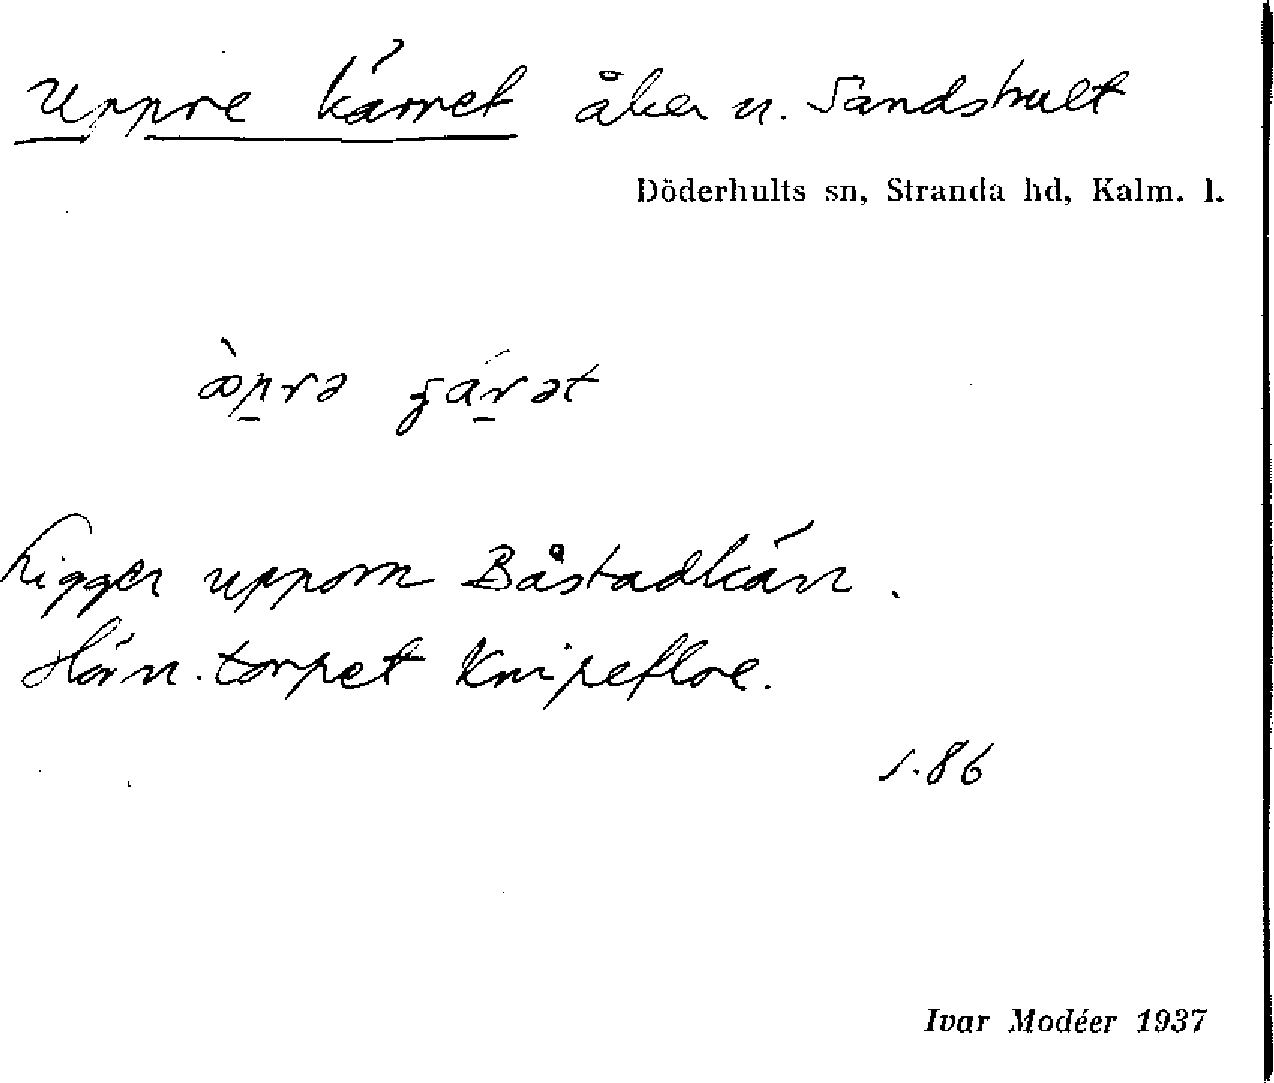 Uppre kärret åker u. Sandshult
Döderhults sn, Stranda hd, Kalm. l.
Ligger uppom Båstadkärr.
Hörn. torpet Knipeflore.
s. 86
Ivar Modéer 1937